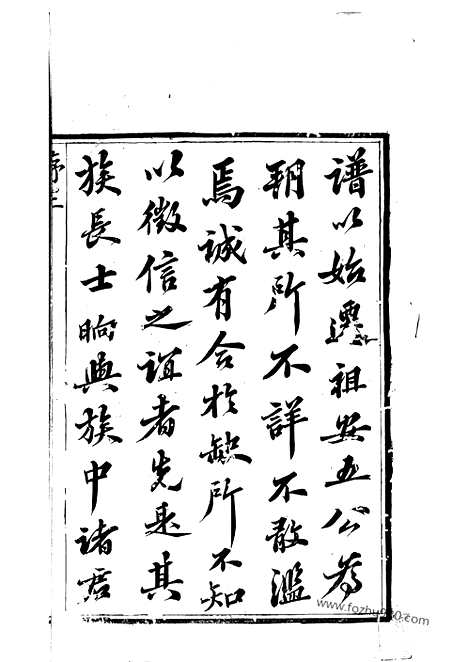 譜以始遷祖安五公為
明其所不詳不敢濫
焉誠有合於缺所不知
以徵信之誼者先是其
族長士晌與族中諸君
序二
www.fozhu920.com